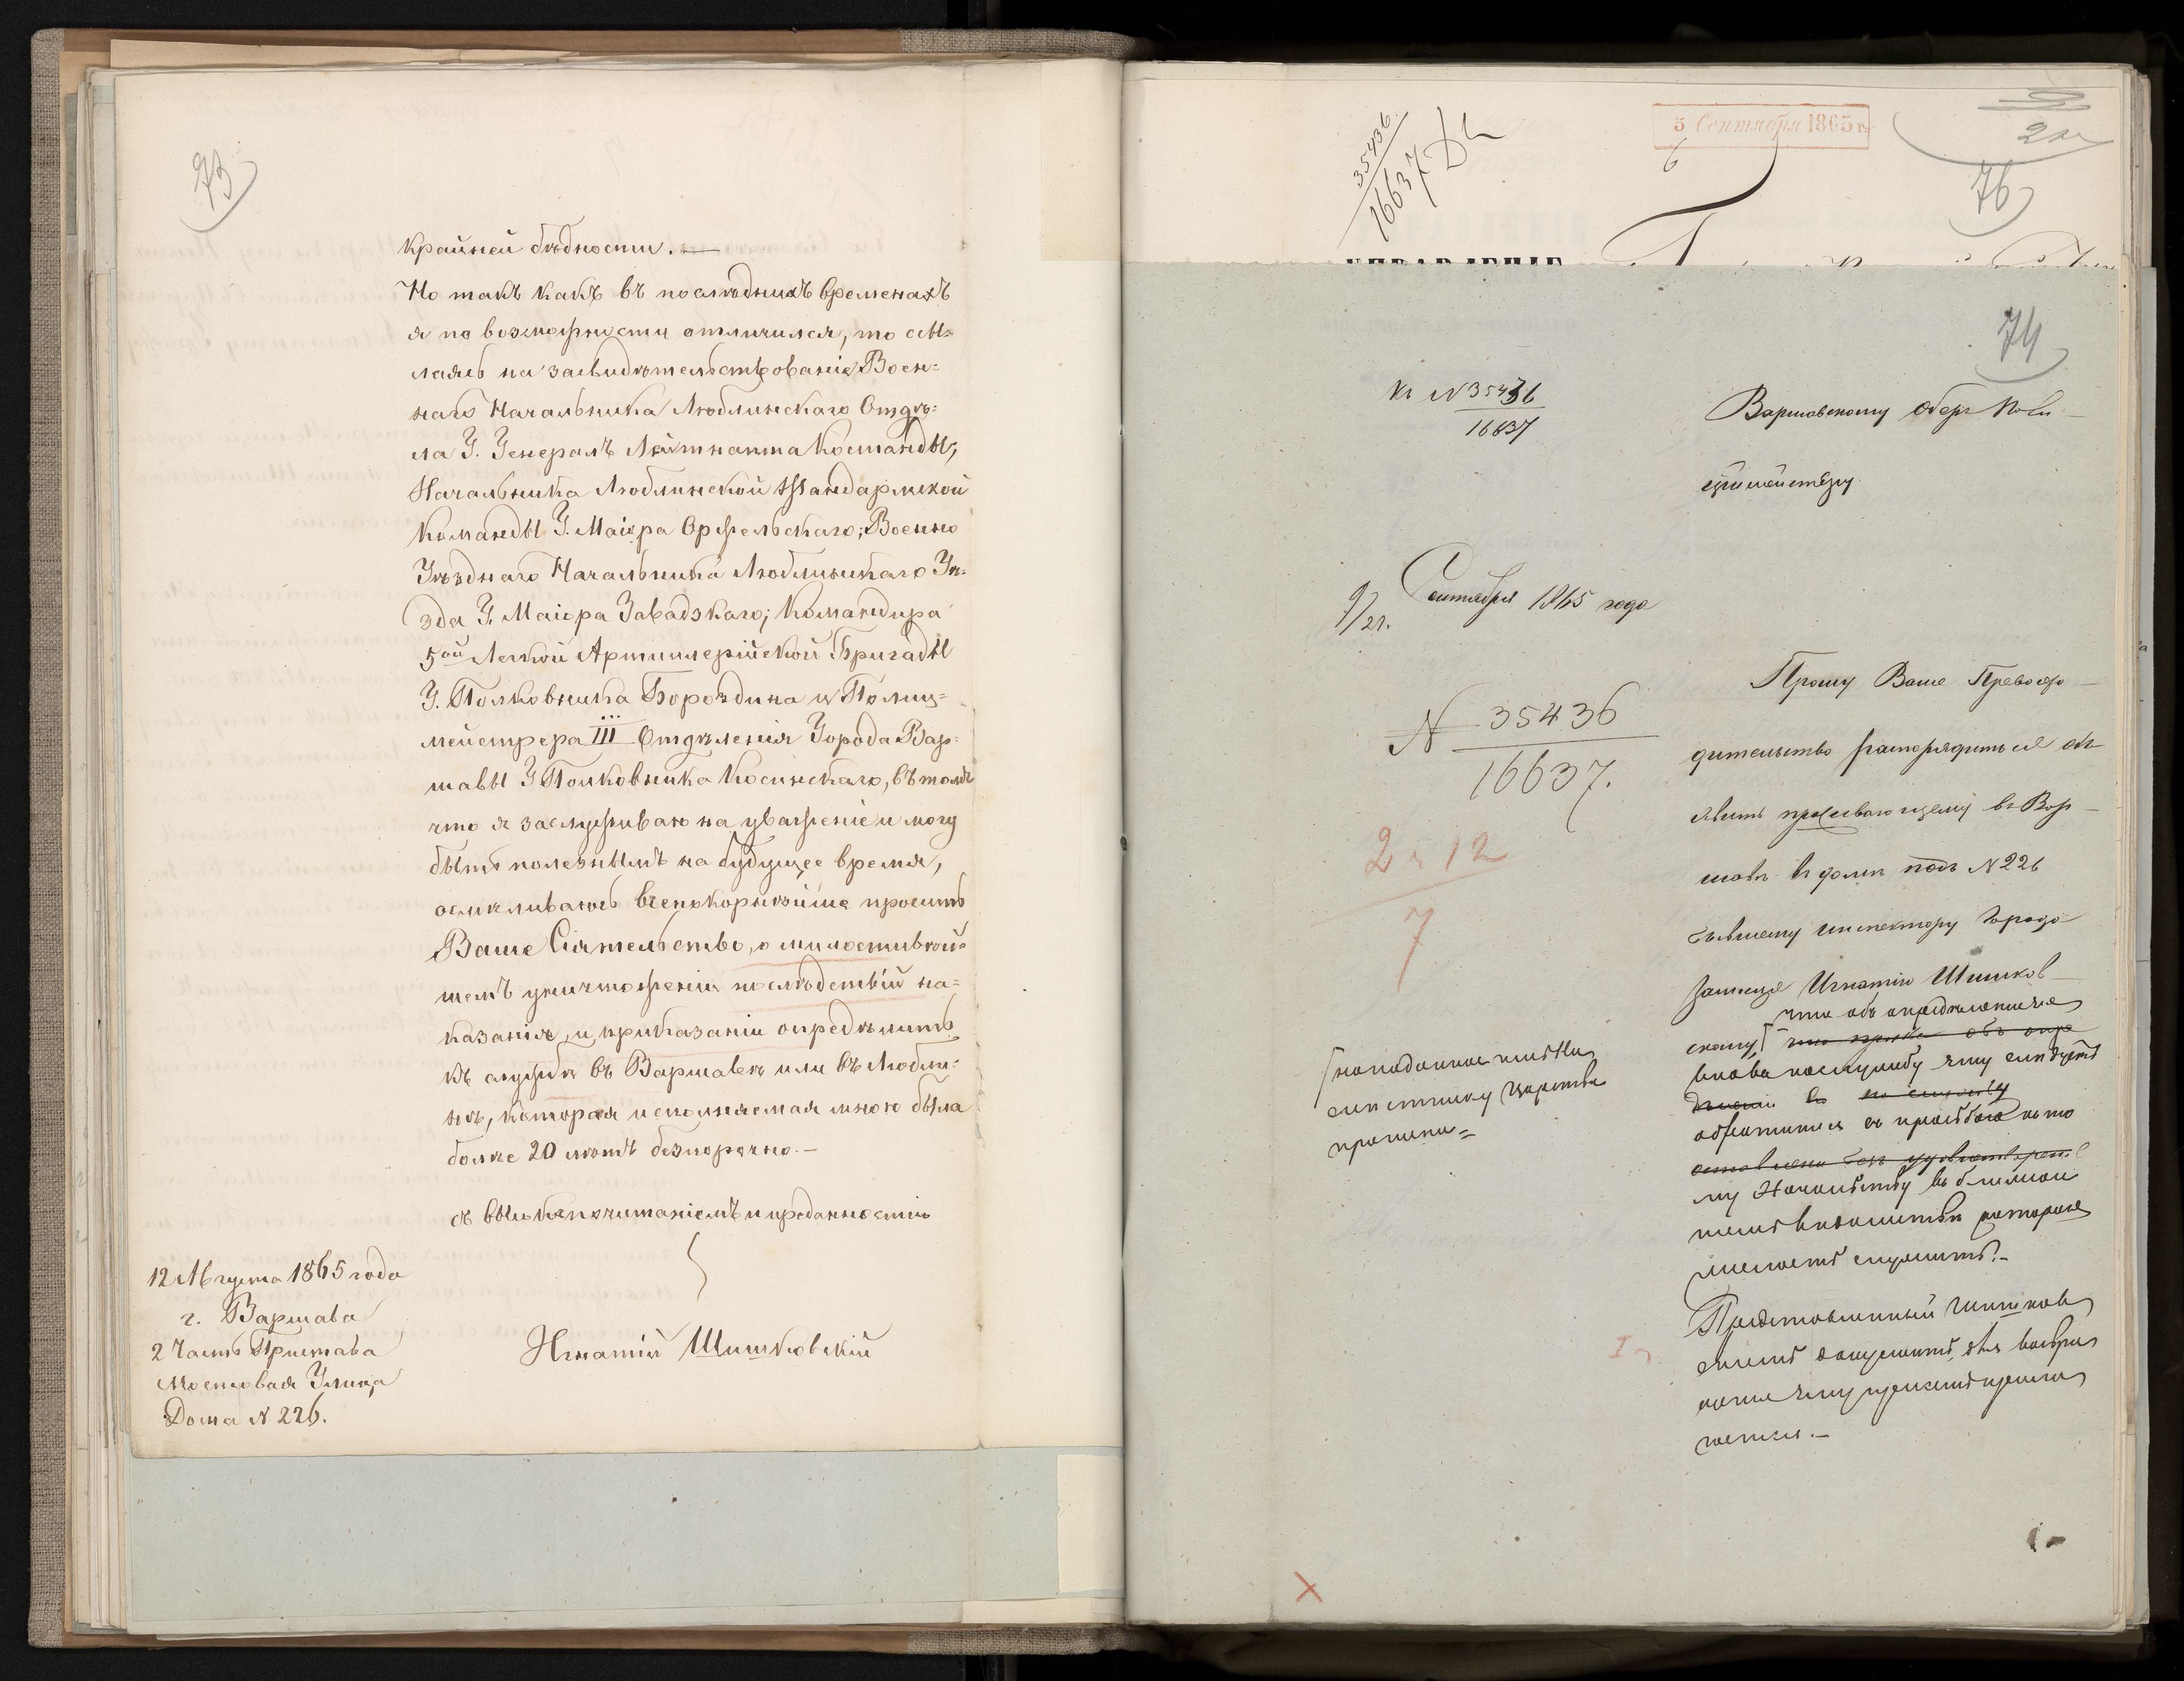 73
крайней бѣдности. —
Но такъ какъ въ послѣднихъ временахъ
я по возможности отличился, то сы-
лаясь на засвидѣтельствованія Воен-
наго Начальника Люблинскаго Отдѣ-
ла Г. Генералъ Лейтнанта Команды,
Начальника Люблинской Жандармской
Команды Г. Маіора Оржельскаго; Военно
Уѣзднаго Начальника Люблинскаго Уѣ-
зда Г. Маіора Завадзкаго; Командира
5ой Легкой Артиллерійской Бригады
Г. Полковника Бороздина и Полиц-
мейстера III Отдѣленія Города Вар-
шавы Г Полковника Косинскаго, въ томъ
что я заслуживаю на уваженіе и могу
быть полезнымъ на будущее время,
осмѣливаюсь всепокорнѣйше просить
Ваше Сіятельство, о милостивѣй-
шемъ уничтоженіи послѣдствій на-
казанія, и приказаніи опредѣлить
къ службѣ въ Варшавѣ или въ Любли-
нѣ, которая исполняемая мною была
болѣе 20 лѣтъ безпорочно. —
съ высокопочитаніемъ и преданностію
12 Августа 1865 года
г. Варшава
2 Часть Пристава
Мостовая Улица
Дома N 226.
Игнатій Шишковскій
35436
16637
5 Сентября 1865 г.
6
76
УПРАВЛЕНІЕ
74
Къ N 35436
16637
Варшавскому Оберъ Поли-
ціймейстеру
9/21. Сентября 1865 года
N 35436
16637.
2 ч 12
7
Прошу Ваше Превосхо-
дительство распорядиться объ-
явить проживающему въ Вар-
шавѣ въ домѣ подъ N 226
бывшему инспектору города
Замосця Игнатію Шишков-
что объ опредѣленіи его
скому
вновь на службу ему слѣдуетъ
обратиться съ просьбою къ то
оставлена безъ удовлетворені
му Начальству въ
вѣдомствѣ котораго
желаетъ служить. —
на поданное имъ На
мѣстнику Царства
прошеніе =
Представленный Шишков
скимъ документъ, для
ему при семъ препрово
ждается. —